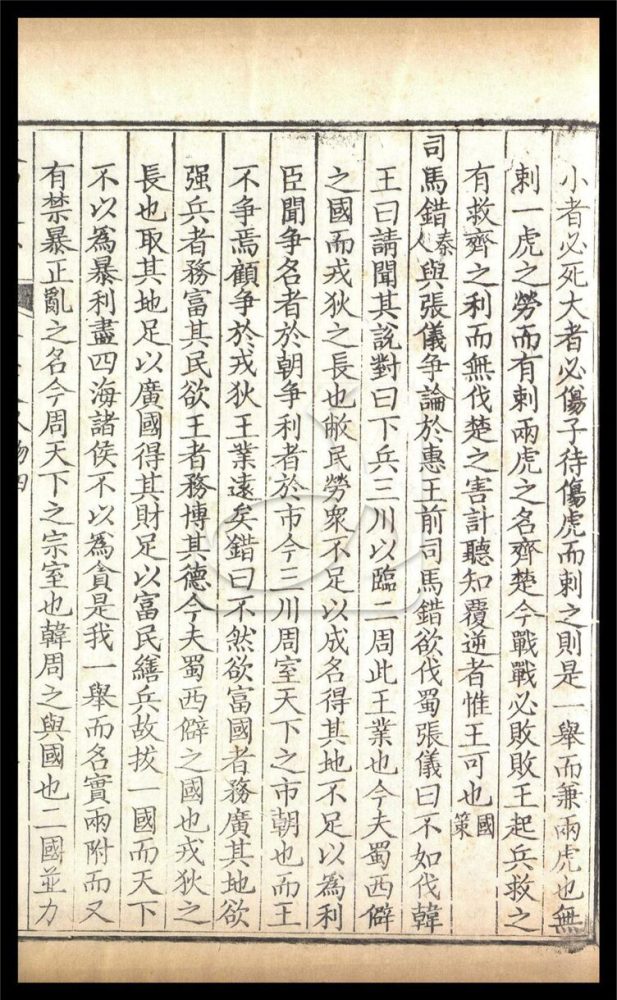 小者必死大者必傷子待傷虎而刺之則是一舉而兼兩虎也無
刺一虎之勞而有刺兩虎之名齊楚今戰戰必敗敗王起兵救之
有救齊之利而無伐楚之害計聽知覆逆者惟王可也國策
司馬錯秦人與張儀爭論於惠王前司馬錯欲伐蜀張儀曰不如伐韓
王曰請聞其說對曰下兵三川以臨二周此王業也今夫蜀西僻
之國而戎狄之長也敝民勞衆不足以成名得其地不足以為利
臣聞争名者於朝争利者於市今三川周室天下之市朝也而王
不争焉顧争於戎狄王業遠矣錯曰不然欲富國者務廣其地欲
强兵者務富其民欲王者務博其德今夫蜀西僻之國也戎狄之
長也取其地足以廣國得其財足以富民繕兵故拔一國而天下
不以為暴利盡四海諸侯不以為貪是我一舉而名實兩附而又
有禁暴正亂之名今周天下之宗室也韓周之與國也二國並力